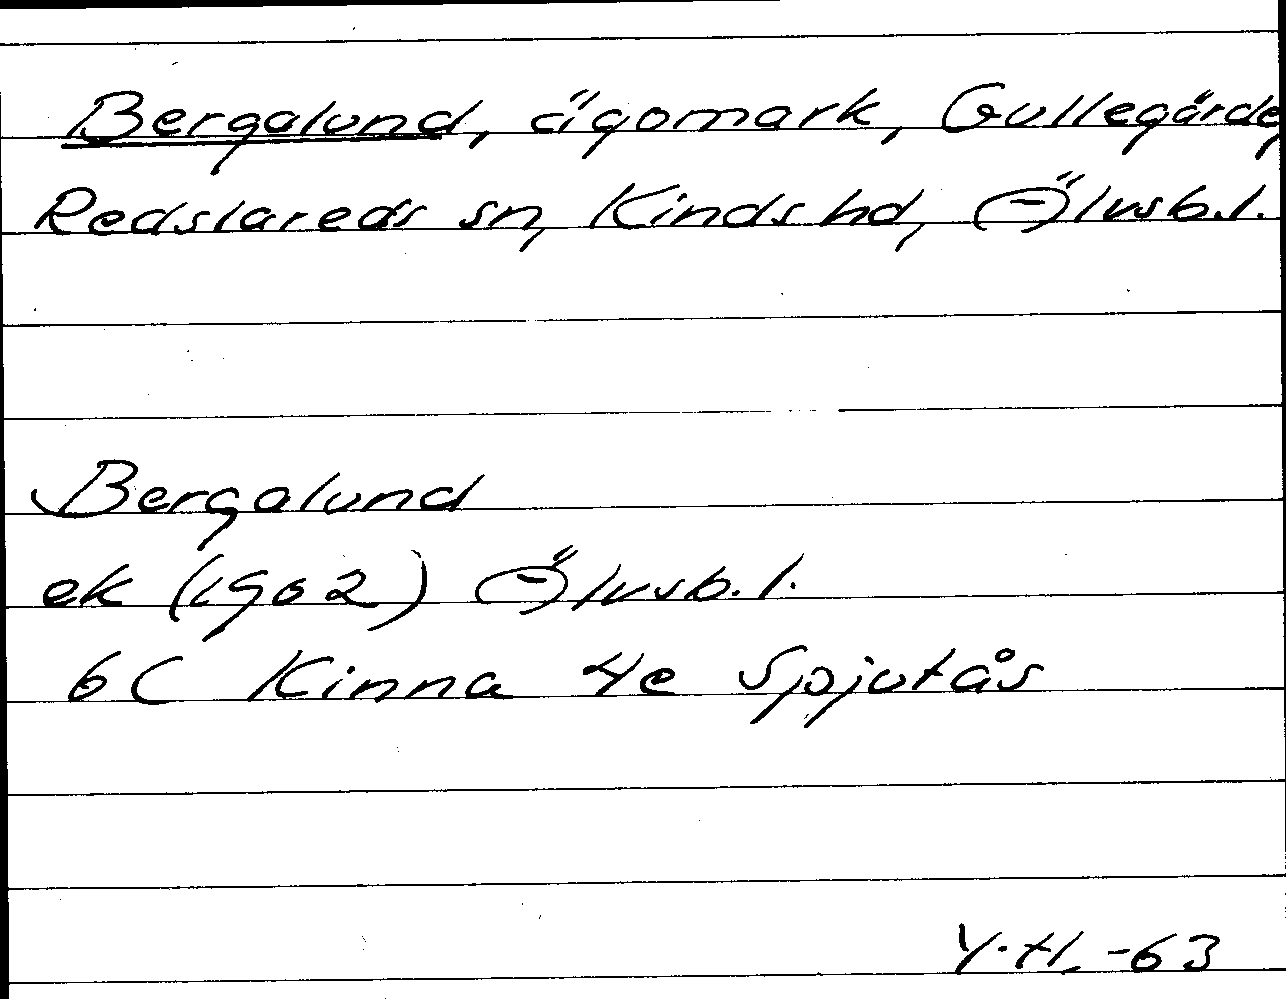 Bergalund, ägomark, Gullegärde,
Redslareds sn, Kinds hd, Älvsb.l.
Bergalund
ek (1962) Älvsb.l.
6C Kinna 4e Spjutås
Y.H. -63